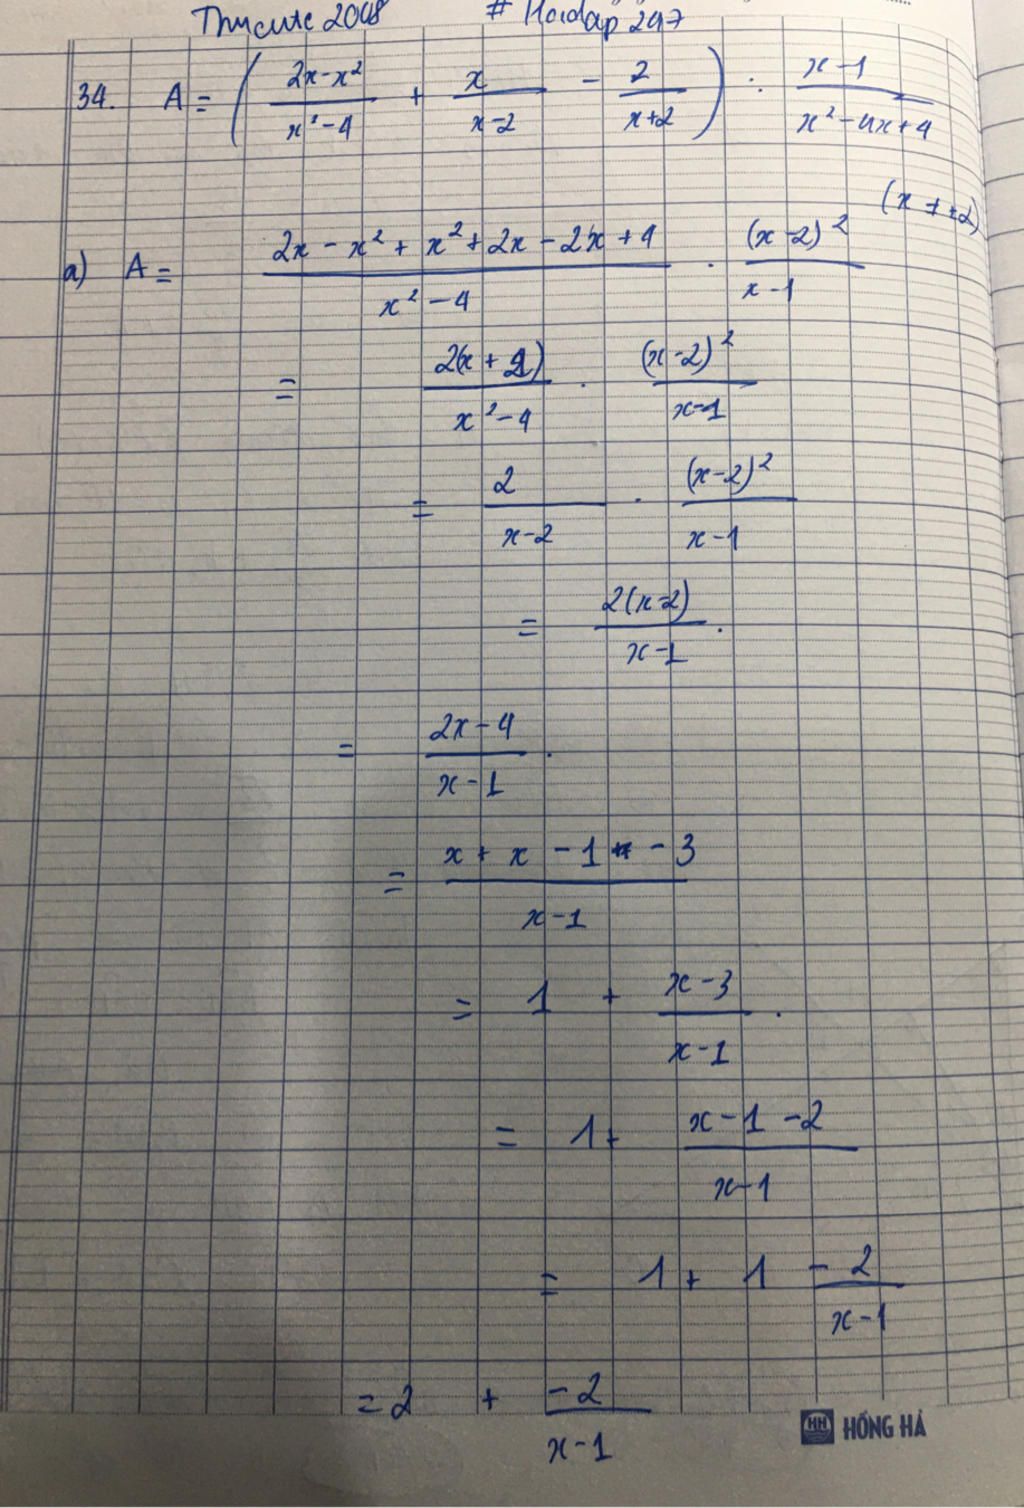 Thucute 2008 # Hoidap 247
34. A = ( (2x-x²)/(x²-4) + x/(x-2) - 2/(x+2) ) : (x-1)/(x²-4x+4)
(x ≠ ±2)
a) A = (2x - x² + x² + 2x - 2x + 4)/(x² - 4) . (x-2)²/(x-1)
= 2(x+2)/(x²-4) . (x-2)²/(x-1)
= 2/(x-2) . (x-2)²/(x-1)
= 2(x-2)/(x-1) .
= (2x-4)/(x-1) .
= (x + x - 1 - 3)/(x-1)
= 1 + (x-3)/(x-1) .
= 1 + (x-1-2)/(x-1)
= 1 + 1 - 2/(x-1)
= 2 + -2/(x-1)
HH HỒNG HÀ